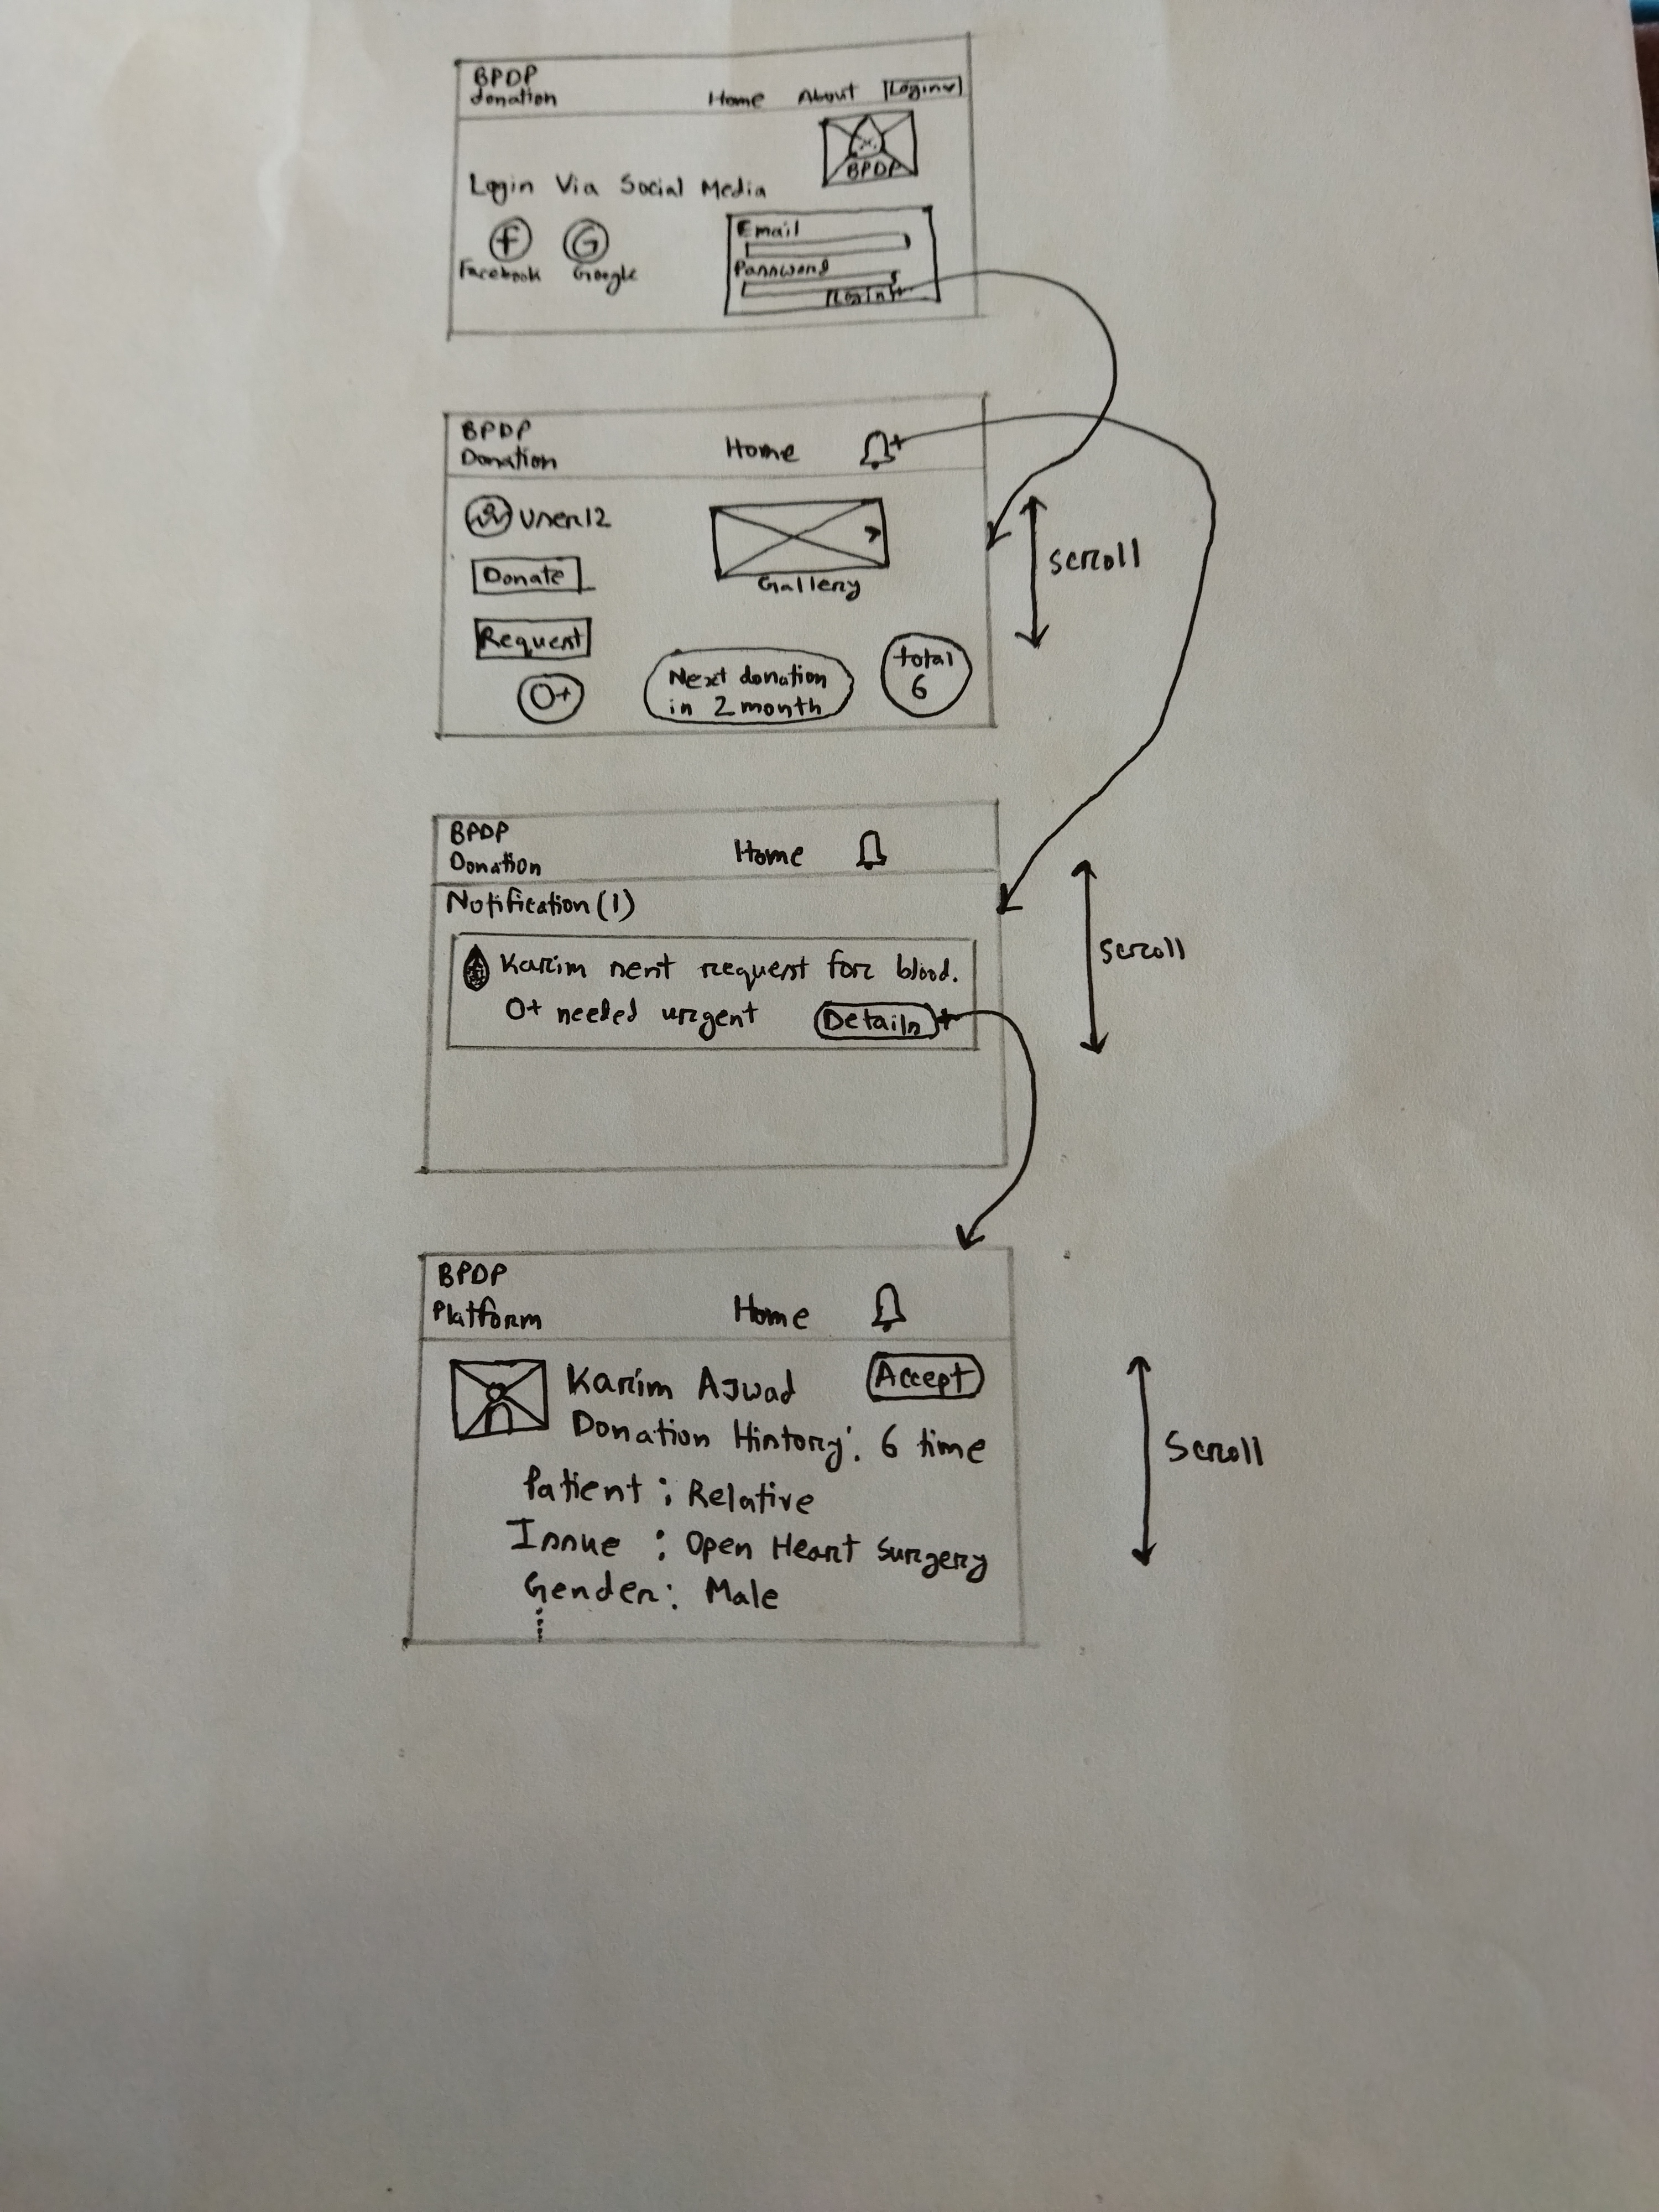 BPDP
donation
Home About Login
BPDP
Login Via Social Media
F G
Facebook Google
Email
Password
Login
BPDP
Donation
Home
User12
Donate
Gallery
Request
O+
Next donation
in 2 month
total
6
scroll
BPDP
Donation
Home
Notification (1)
Karim sent request for blood.
O+ needed urgent Details
scroll
BPDP
Platform
Home
Karim Ajwad Accept
Donation History: 6 time
Patient : Relative
Issue : Open Heart Surgery
Gender: Male
Scroll